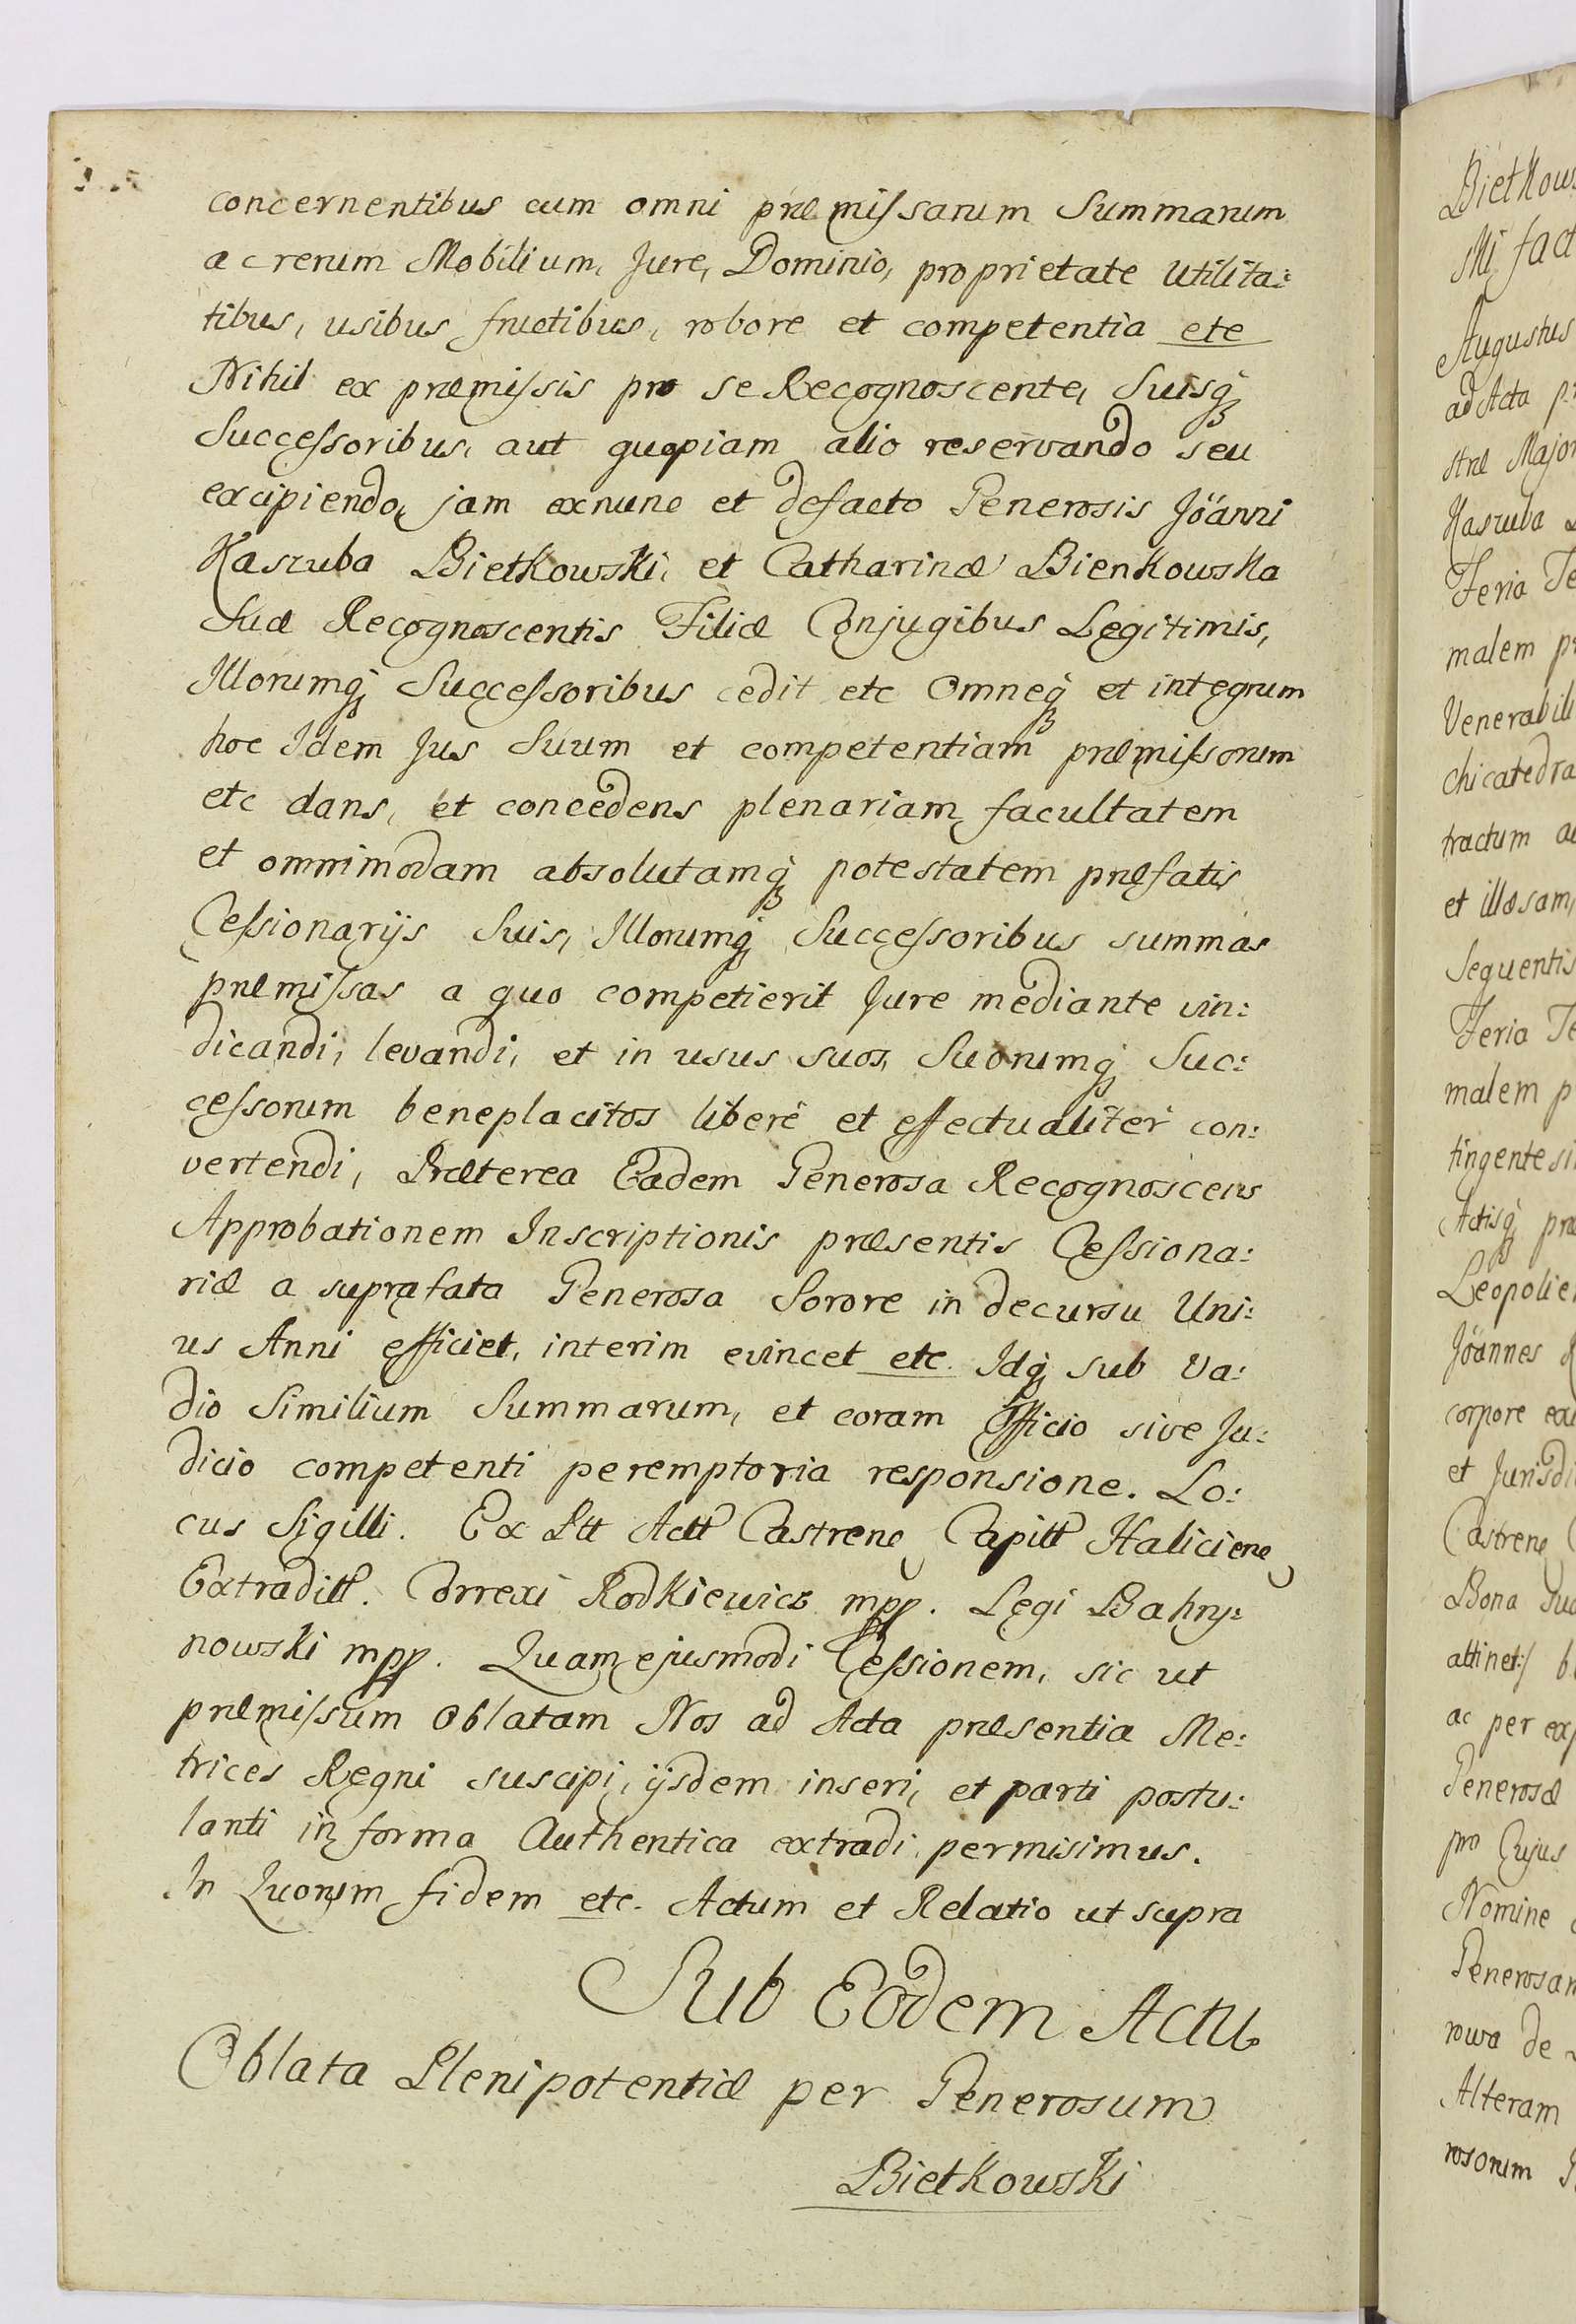 concernentibus cum omni præmissarum Summarum
ac rerum Mobilium, Jure, Dominio, proprietate Utilita:
tibus, usibus fructibus, robore et competentia etc
Nihil ex præmissis pro se Recognoscente, Suisq
Successoribus, aut quopiam alio reservando seu
excipiendo, jam exnunc et defacto Generosis Joanni
Kaszuba Bietkowski, et Catharinæ Bienkowska
Suæ Recognoscentis Filiæ Conjugibus Legitimis,
Illorumq Successoribus cedit etc Omneq et integrum
hoc Idem Jus Suum et competentiam præmissorum
etc dans, et concedens plenariam facultatem
et omnimodam absolutamq potestatem præfatis
Cessionarijs Suis, Illorumq Successoribus summas
præmissas a quo competierit Jure mediante vin:
dicandi, levandi, et in usus suos, Suorumq Suc:
cessorum beneplacitos liberè et effectualiter con:
vertendi, Præterea Eadem Generosa Recognoscens
Approbationem Inscriptionis præsentis Cessiona:
riæ a suprafata Generosa Sorore in decursu Uni:
us Anni efficiet, interim evincet etc. Idq sub Va:
dio Similium Summarum, et coram Officio sive Ju:
dicio competenti peremptoria responsione. Lo:
cus Sigilli. Ex Ptt Actt Castrene Capitt Haliciene
Extraditt. Correxi Rodkiewicz mpp. Legi Bahry:
nowski mpp. Quam ejusmodi Cessionem, sic ut
præmissum Oblatam Nos ad Acta præsentia Me:
trices Regni suscipi, ijsdem inseri, et parti postu:
lanti in forma Authentica extradi permisimus.
In Quorum fidem etc. Actum et Relatio ut supra
Sub Eodem Actu
Oblata Plenipotentiæ per Generosum
Bietkowski
Bietkow
ski fact
Augustus
ad Acta
stræ Major
Kaszuba
Feria
malem
Venerabili
chicatedra
tractum
et illosam
Sequentis
Feria
malem
tingente
Actisq præ
Leopolie
Joannes
corpore
et Jurisdi
Castrene
Bona
attinet
ac per
Generosæ
pro Cujus
Nomine
Generosam
rowa de
Alteram
rosorum